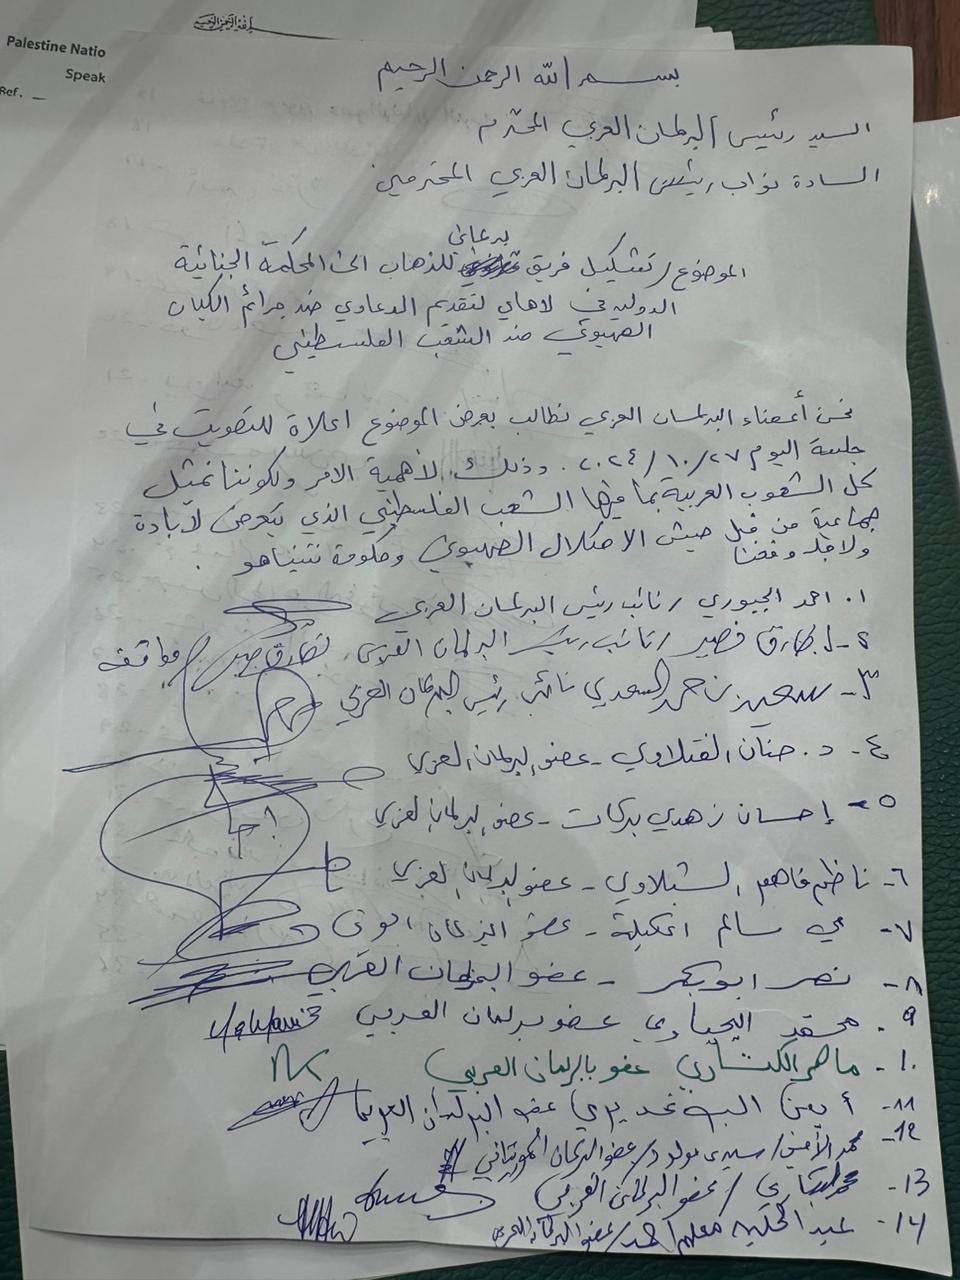 Palestine Natio
Speak
Ref.
بسم الله الرحمن الرحيم
السيد رئيس البرلمان العربي المحترم
السادة نواب رئيس البرلمان العربي المحترمين
برلماني
الموضوع / تشكيل فريق للذهاب الى المحكمة الجنائية
الدولية في لاهاي لتقديم الدعاوي ضد جرائم الكيان
الصهيوني ضد الشعب الفلسطيني
نحن أعضاء البرلمان العربي نطالب بعرض الموضوع اعلاة للتصويت في
جلسة اليوم ٢٠٢٤/١٠/٢٧. وذلك لأهمية الامر ولكوننا نمثل
كل الشعوب العربية بما فيها الشعب الفلسطيني الذي يتعرض لأبادة
جماعية من قبل جيش الاحتلال الصهيوني وحكومة نتنياهو.
ولاجله وقعنا
١. احمد الجبوري / نائب رئيس البرلمان العربي
٢- طارق نصير / نائب رئيس البرلمان العربي موافق
٣- السعدي نائب رئيس البرلمان العربي
٤- د. حنان الفتلاوي - عضو البرلمان العربي
٥- إحسان زهدي بركات - عضو البرلمان العربي
٦- ناظم فاهم الشبلاوي - عضو البرلمان العربي
٧- سالم - عضو البرلمان العربي
٨- نصر ابوبكر - عضو البرلمان العربي
٩. محمد اليحياوي عضو برلمان العربي
١٠- ماهر الكتاري عضو بالبرلمان العربي
11- أيمن عضو البرلمان العربي
12- محمد الأمين / سيدي مولود / عضو البرلمان الموريتاني
13- محمد / عضو البرلمان العربي
14- معلم أحمد / عضو البرلمان العربي